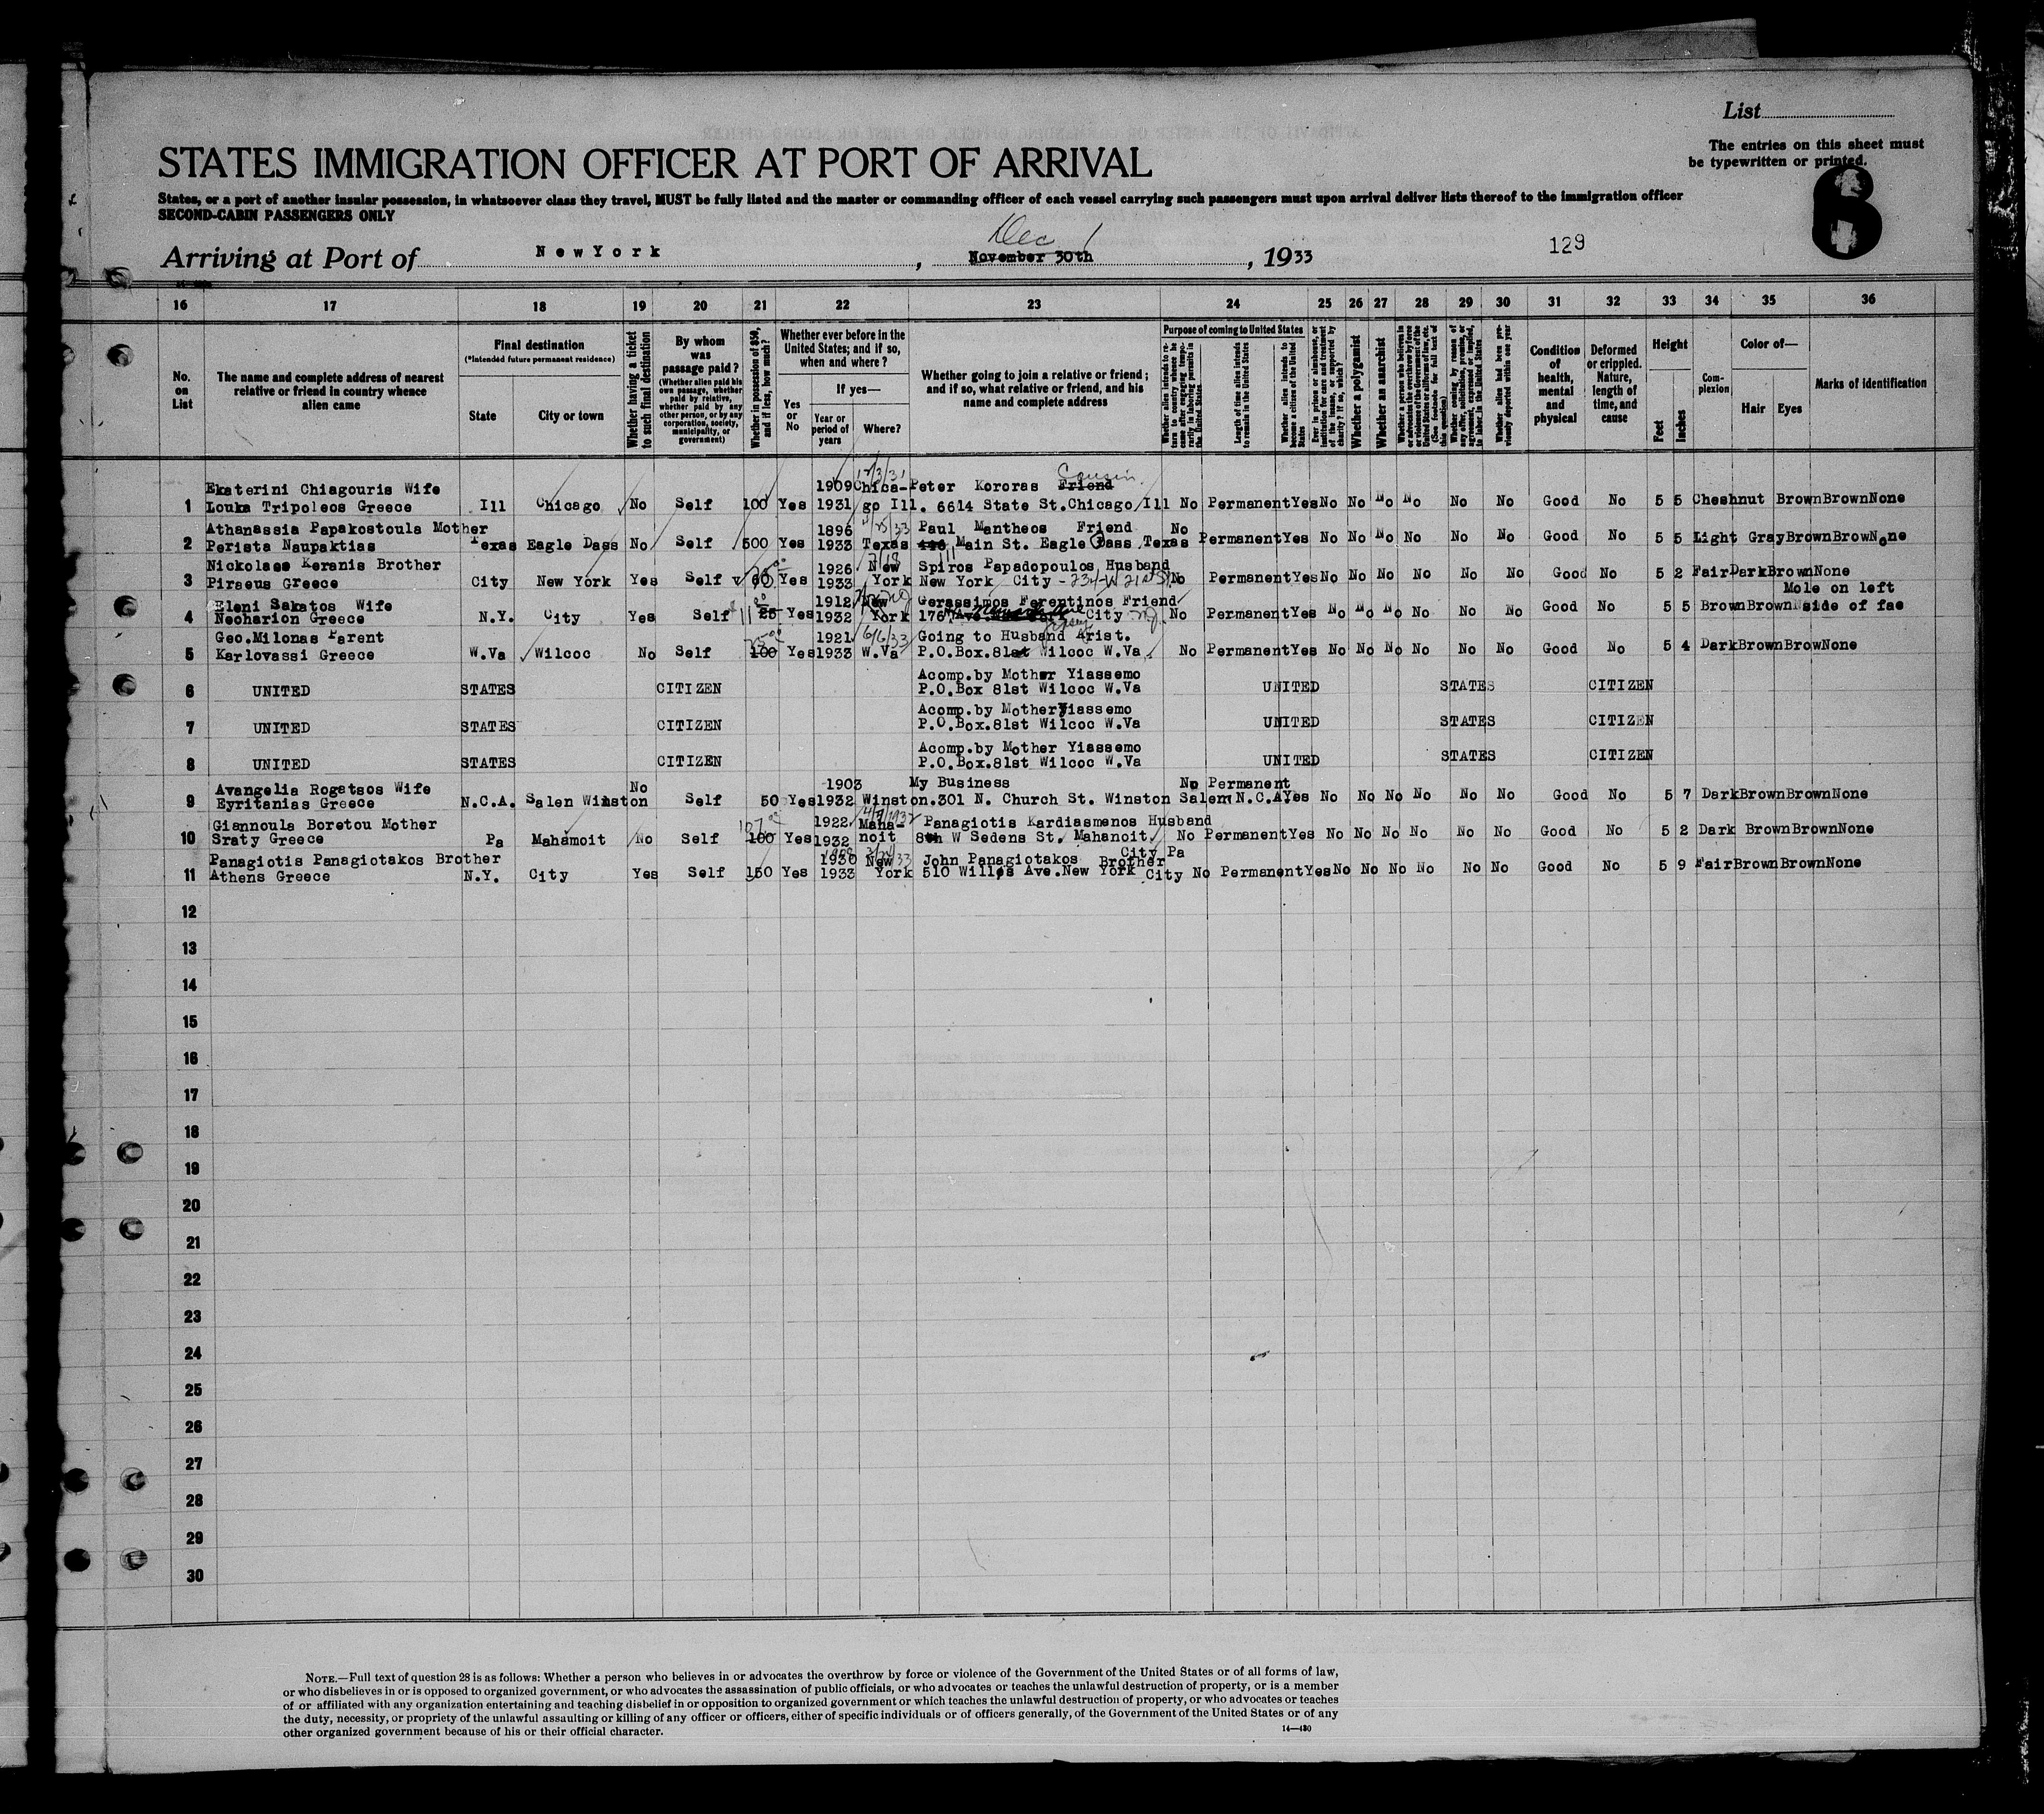 List
The entries on this sheet must
be typewritten or printed.
STATES IMMIGRATION OFFICER AT PORT OF ARRIVAL
States, or a port of another insular possession, in whatsoever class they travel, MUST be fully listed and the master or commanding officer of each vessel carrying such passengers must upon arrival deliver lists thereof to the immigration officer
SECOND-CABIN PASSENGERS ONLY
8
Dec 1
Arriving at Port of NewYork, November 30th, 1933
129
16 17 18 19 20 21 22 23 24 25 26 27 28 29 30 31 32 33 34 35 36
No. on List
The name and complete address of nearest relative or friend in country whence alien came
Final destination
(*Intended future permanent residence)
State
City or town
Whether having a ticket to such final destination
By whom was passage paid?
(Whether alien paid his own passage, whether paid by relative, whether paid by any other person, or by any corporation, society, municipality, or government)
Whether in possession of $50, and if less, how much?
Whether ever before in the United States; and if so, when and where?
Yes or No
If yes—
Year or period of years
Where?
Whether going to join a relative or friend; and if so, what relative or friend, and his name and complete address
Purpose of coming to United States
Length of time alien intends to remain in the United States
Whether alien intends to become a citizen of the United States
Whether a polygamist
Whether an anarchist
Condition of health, mental and physical
Deformed or crippled. Nature, length of time, and cause
Height
Feet
Inches
Com-plexion
Color of—
Hair
Eyes
Marks of identification
12/3/31 Cousin
Ekaterini Chiagouris Wife 1909 Chica- Peter Kororas Friend
1 Louka Tripoleos Greece Ill Chicago No Self 100 Yes 1931 go Ill. 6614 State St.Chicago Ill No Permanent Yes No No No No No No Good No 5 5 Cheshnut Brown Brown None
Athanassia Papakostoula Mother 1896 Paul Mantheos Friend No
2 Perista Naupaktias Texas Eagle Dass No Self 500 Yes 1933 Texas Main St. Eagle Pass Texas Permanent Yes No No No No No No Good No 5 5 Light Gray Brown BrowNone
Nickolaos Keranis Brother 1926 New Spiros Papadopoulos Husband
3 Piraeus Greece City New York Yes Self 60 Yes 1933 York New York City - 234-W 21st St No Permanent Yes No No No No No No Good No 5 2 Fair Dark Brown None
Mole on left
Eleni Sakatos Wife 1912 New Gerassimos Ferentinos Friend
4 Neoharion Greece N.Y. City Yes Self 25 Yes 1932 York 176 Ave. City No Permanent Yes No No No No No No Good No 5 5 Brown Brown side of fae
Geo.Milonas Parent 1921 6/6/33 Going to Husband Arist.
5 Karlovassi Greece W.Va Wilcoc No Self 100 Yes 1933 W.Va P.O.Box.81st Wilcoc W.Va. No Permanent Yes No No No No No No Good No 5 4 Dark Brown Brow None
Acomp.by Mother Yiassemo
6 UNITED STATES CITIZEN P.O.Box 81st Wilcoc W.Va UNITED STATES CITIZEN
Acomp.by Mother Yiassemo
7 UNITED STATES CITIZEN P.O.Box.81st Wilcoc W.Va UNITED STATES CITIZEN
Acomp.by Mother Yiassemo
8 UNITED STATES CITIZEN P.O.Box.81st Wilcoc W.Va UNITED STATES CITIZEN
Avangelia Rogatsos Wife No 1903 My Business No Permanent
9 Eyritanias Greece N.C.A. Salen Winston Self 50 Yes 1932 Winston.301 N. Church St. Winston Salem N.C.A Yes No No No No No No Good No 5 7 Dark Brown Brown None
Giannoula Boretou Mother 1922 Maha- Panagiotis Kardiasmenos Husband
10 Sraty Greece Pa Mahamoit No Self 100 Yes 1932 noit 8th W Sedens St. Mahanoit No Permanent Yes No No No No No No Good No 5 2 Dark Brown Brown None
City Pa
Panagiotis Panagiotakos Brother 1930 New John Panagiotakos Brother
11 Athens Greece N.Y. City Yes Self 150 Yes 1933 York 510 Willes Ave.New York City No Permanent Yes No No No No No No Good No 5 9 Fair Brown Brown None
12
13
14
15
16
17
18
19
20
21
22
23
24
25
26
27
28
29
30
NOTE.—Full text of question 28 is as follows: Whether a person who believes in or advocates the overthrow by force or violence of the Government of the United States or of all forms of law,
or who disbelieves in or is opposed to organized government, or who advocates the assassination of public officials, or who advocates or teaches the unlawful destruction of property, or is a member
of or affiliated with any organization entertaining and teaching disbelief in or opposition to organized government or which teaches the unlawful destruction of property, or who advocates or teaches
the duty, necessity, or propriety of the unlawful assaulting or killing of any officer or officers, either of specific individuals or of officers generally, of the Government of the United States or of any
other organized government because of his or their official character.
14—430